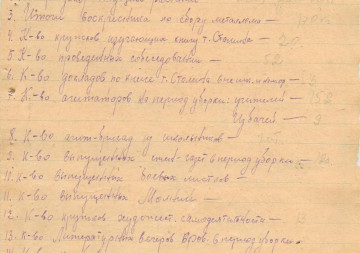 3. Итоги воскресника по сбору металлома —
4. К-во кружков изучающих книгу т. Сталина — 20
5. К-во проведенных собеседований — 52
6. К-во докладов по книге т. Сталина
7. К-во агитаторов на период уборки: учителей — 156
9
8. К-во агит-бригад из школьников —
9. К-во выпущенных стен-газет в период уборки —
10. К-во выпущенных боевых листков —
11. К-во выпущенных Молний —
12. К-во кружков худочест. самодеятельности —
13. К-во Литературных вечеров в период уборки —